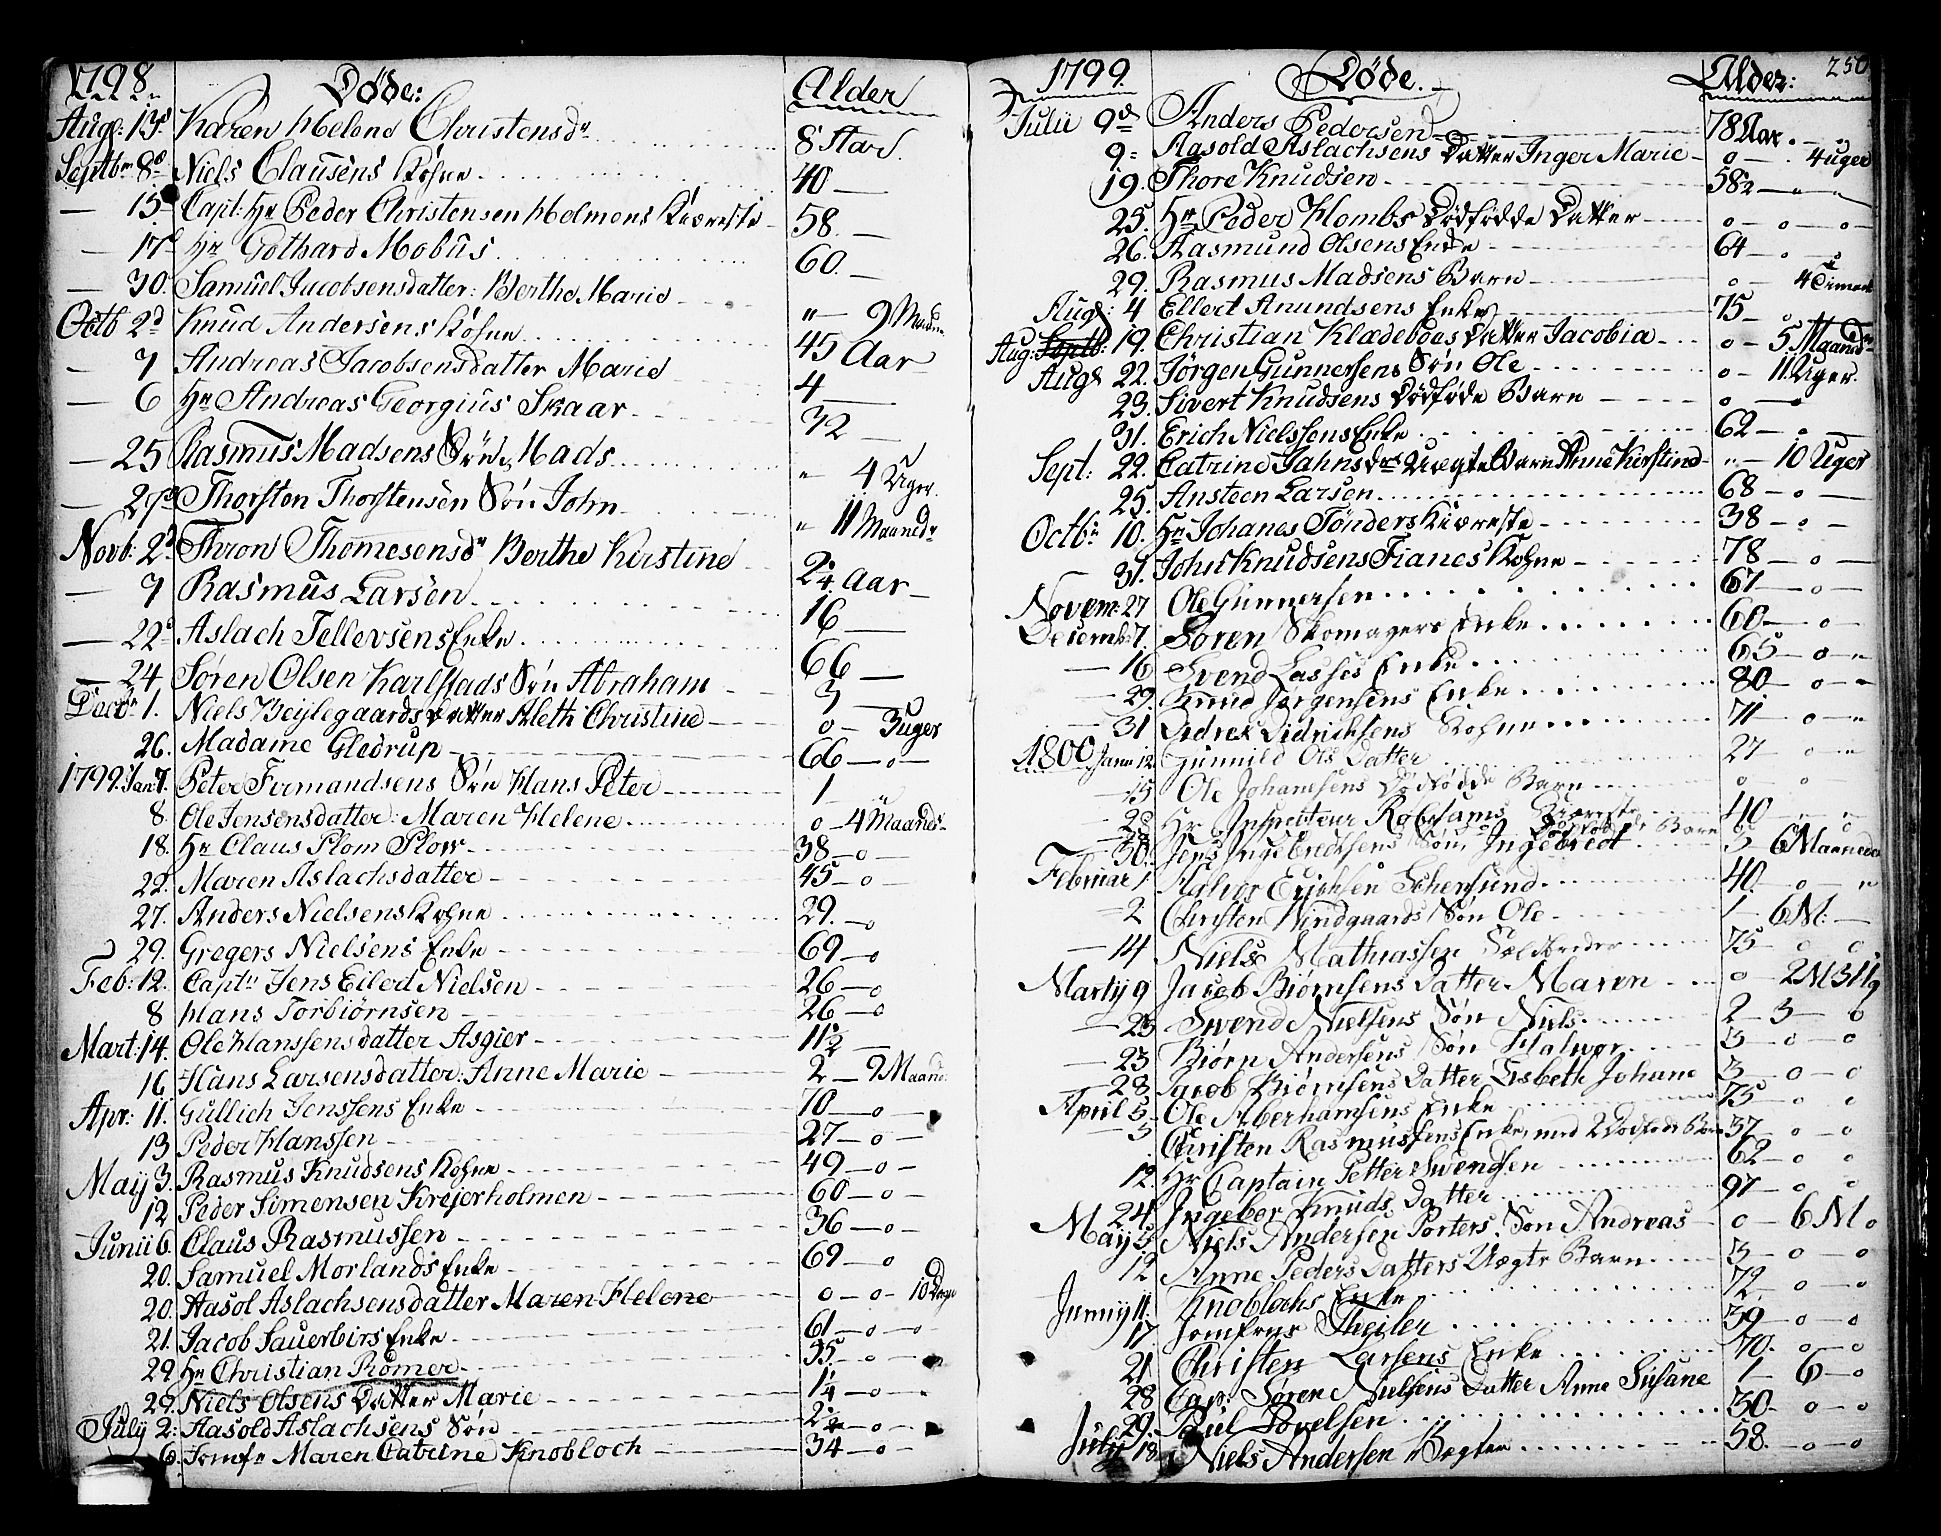 1798. Døde: Alder
Aug: 13d Karen Helene Christensdr 8 Aar.
Septbr 8d Niels Clausens Kohne 40 —
— 15 Capt: Hr Peder Christensen Holmens Kiæreste 58. —
— 17d Hr Gothard Mobüs 60. —
— 30. Samuel Jacobsensdatter: Berthe Marie " — 9 Maan
Octb 2d Knud Andersens Kohne 45 Aar
— 7 Andreas Jacobsensdatter Marie 4 —
— 6 Hr Andreas Georgius Skaar 32 —
— 25 Rasmus Madsens Søn Mads " 4 Uger.
— 27d Thorsten Thorstensen Søn John " 11 Maandr
Novb: 2d Thron Thomesensdr Berthe Kirstine 2¼ Aar —
— 7 Rasmus Larsen 16 —
— 22d Aslach Tellevsens Enke 66 —
— 24 Søren Olsen Karlstads Søn Abraham 3 —
Decbr 1. Niels Bejlegaards Datter Aleth Christine 0 — 3 uger
26. Madame Gledrup 66 — o —
1799. Jan 7. Peter Firmandsens Søn Hans Peter 1 — "
8. Ole Jensensdatter: Maren Helene 0 — 4 Maaneds
18. Hr Claus Plom Plow 38 — o —
22. Maren Aslachsdatter 45 — o —
27. Anders Nielsens Kohne 29. — o
29. Gregers Nielsens Enke 69 — o
Feb: 12. Captn Jens Eilert Nielsen 26 — o
8 Hans Torbiørnsen 26 — o
Mart: 14. Ole Hanssens datter Asgier 11½ —
16 Hans Larsensdatter: Anne Marie 2 — 9 Maane:
Apr: 11. Gullich Jenssens Enke 70 — o —
13 Peder Hanssen 27 — o —
May 3. Rasmus Knudsens Kohne 49 — o —
12 Peder Simensen Krejerholmen 60 — o —
Junii 6. Claus Rasmussen 36 — o —
20. Samuel Morlands Enke 69 — o
20. Aasol Aslachsensdatter Maren Helene 0 — o — 10 Dage
21. Jacob Sauerbirs Enke 61 — o — o
29. Hr Christian Rømer 35. — o —
29. Niels Olsens Datter Marie 1¼ — o —
July 2: Aasold Aslachsens Søn 2½ — o —
6. Jomfr Maren Catrine Knobloch 34 — o —
1799. Døde. Alder: 250
Julii 9d Anders Pedersen 78 Aar. — "
9 Aasold Aslachsens Datter Inger Marie o — . 4 uger
19. Thore Knudsen 58½ — " — "
25. Hr Peder Hombs Dødfødde Datter o — o — o —
26. Aasmund Olsens Enke 64 — o —
29. Rasmus Madsens Barn o — 4
Aug: 4 Ellert Anundsens Enke 75 — o
Aug: Septb: 19. Christian Klædeboes Datter Jacobia o — 5 Maaneds
Aug 22. Jørgen Gunnersens Søn Ole o — 11 Uger.
23. Sivert Knudsens Dødføde Barn o — o
31. Erich Nielssens Enke 62 — o —
Sept: 22. Catrine Jahnsdrs Uægte Barn Anne Kirstine " — 10 Uger
25. Ansteen Larsen 68 — o —
Octbr 10. Hr Johanes Tønders Kiæreste 38 — o —
31. John Knudsens Fianes Kohne 78 — o —
Novem: 27 Ole Gunnersen 67 — o —
Decemb: 7. Soren Skomagers Enke 60 — o
— 16 Svend Lasses Enke 65 — o — "
— 29. Knud Jørgensens Enke 80 — o — "
— 31 Didrek Didriksens Kohne 71 — o — "
1800 Janu 12. Gunnild Ols Datter 27 o — "
— 15 Ole Johansens Dødfødde Barn o o —
— 28 Hr Inspecteur Robesams Kiæreste 40 — " — "
Dødfødde Barn
— 30. Jens Inge Erichsens Søn, Ingebrect 3 — 6 Maaneder
Februar 1 Halvor Erichsen Schensund 40. o — "
— 2 Christen Windgaards Søn Ole 1 — 6 M: —
— 14 Niels Mathiassen 75 — o o
Martij 9 Jacob Biørnsens Datter Maren o — 2 M 3 Ug
— 23 Swend Nielsens Søn Niels 2 — 3 — o
— 23 Biørn Andersens Søn Halvor 3 — o — o
— 28 Jacob Biørnsens Datter Lisbeth Johane 3 — o — o
April 5. Ole Aberhamsens Enke 75 — o o
— 5 Christen Rasmussens Enke, med 2 Dødføde Børn 37 — o — o
12. Hr Captain Petter Swendsen 62 — o — o
24. Ingebor Knuds Datter 97 — o o
May 5 Niels Andersen Porters Søn Andreas o — 6 M o
12 Anne Peders Datters Uægte Barn 3 — o — o
Junnij 11. Knoblochs Enke 72. — o — o
17 Jomfrue Theiler 39. — o — o
21 Christen Larsens Enke 70. — o — o
28 Cap: Søren Nielsens Datter Anne Susane 1 — 6 — o
29. Paul Povelsen 30. — o — o
July 18. Niels Andersen Vægter 58. — o — o